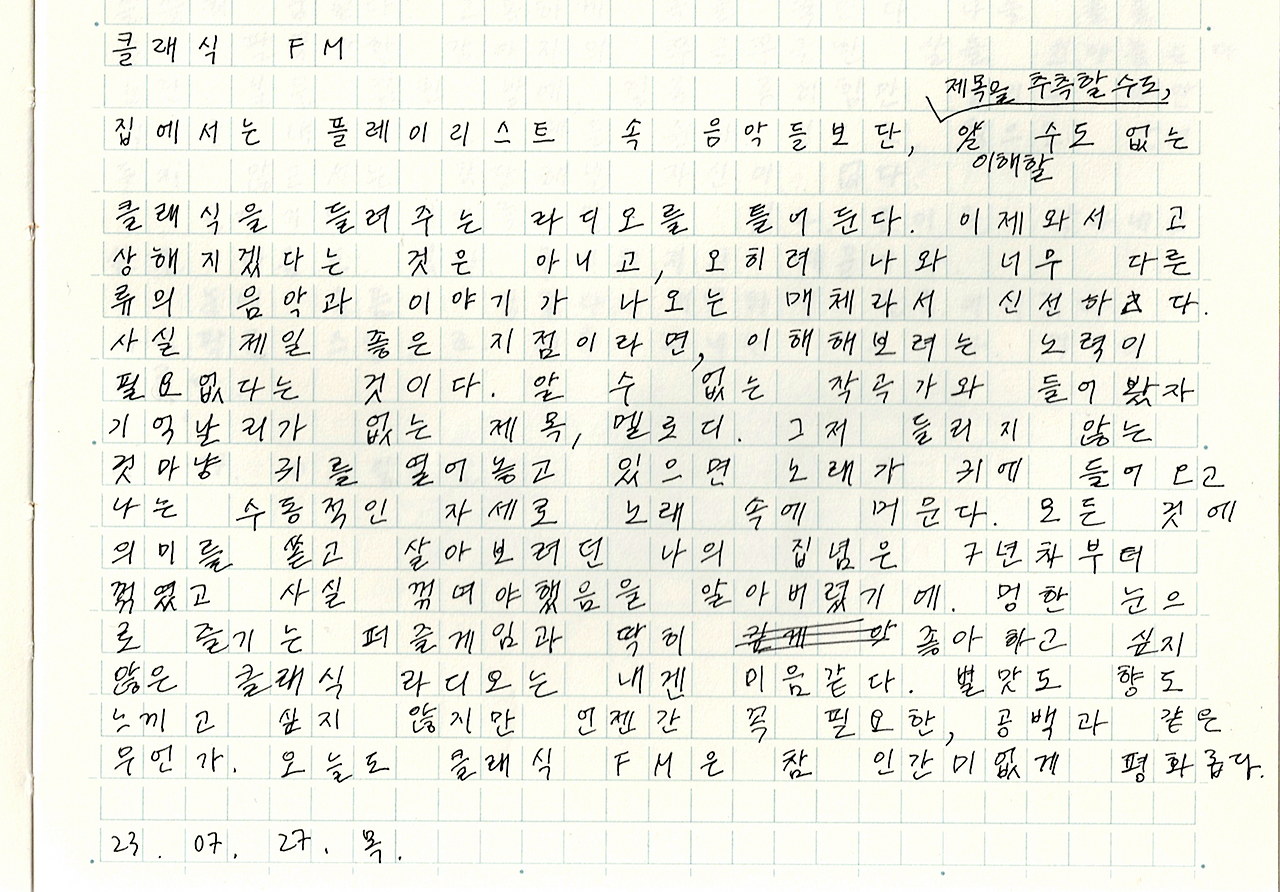 클래식 FM
제목을 추측할 수도,
집에서는 플레이리스트 속 음악들보단, 알 수도 없는
이해할
클래식을 들려주는 라디오를 틀어둔다. 이제와서 고
상해지겠다는 것은 아니고, 오히려 나와 너무 다른
류의 음악과 이야기가 나오는 매체라서 신선하다.
사실 제일 좋은 지점이라면, 이해해보려는 노력이
필요없다는 것이다. 알 수 없는 작곡가와 들어봤자
기억날리가 없는 제목, 멜로디. 그저 들리지 않는
것마냥 귀를 열어놓고 있으면 노래가 귀에 들어오고
나는 수동적인 자세로 노래 속에 머문다. 모든 것에
의미를 쏟고 살아보려던 나의 집념은 7년차부터
꺾였고 사실 꺾여야했음을 알아버렸기에. 멍한 눈으
로 즐기는 퍼즐게임과 딱히 좋아하고 싶지
않은 클래식 라디오는 내겐 미음같다. 별맛도 향도
느끼고 싶지 않지만 언젠간 꼭 필요한, 공백과 같은
무언가. 오늘도 클래식 FM은 참 인간미없게 평화롭다.
23. 07. 27. 목.